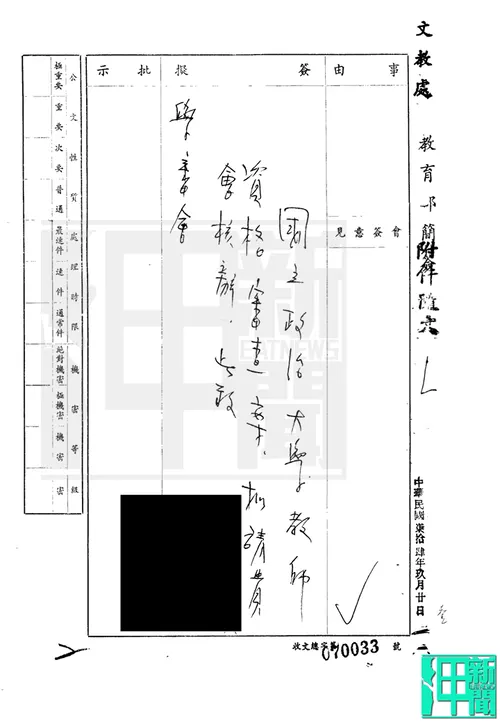 文教處
教育部簡
附件隨文
中華民國柒拾肆年玖月廿日
事由
簽擬批示
會簽意見
國立政治大學教師
資格審查案，擬請貴
會核辦，此致
學審會
收文總字第070033號
公文性質
極重要
重要
次要
普通
處理時限
最速件
速件
通常件
機密等級
絕對機密
極機密
機密
密
新聞
BEATNEWS
新聞